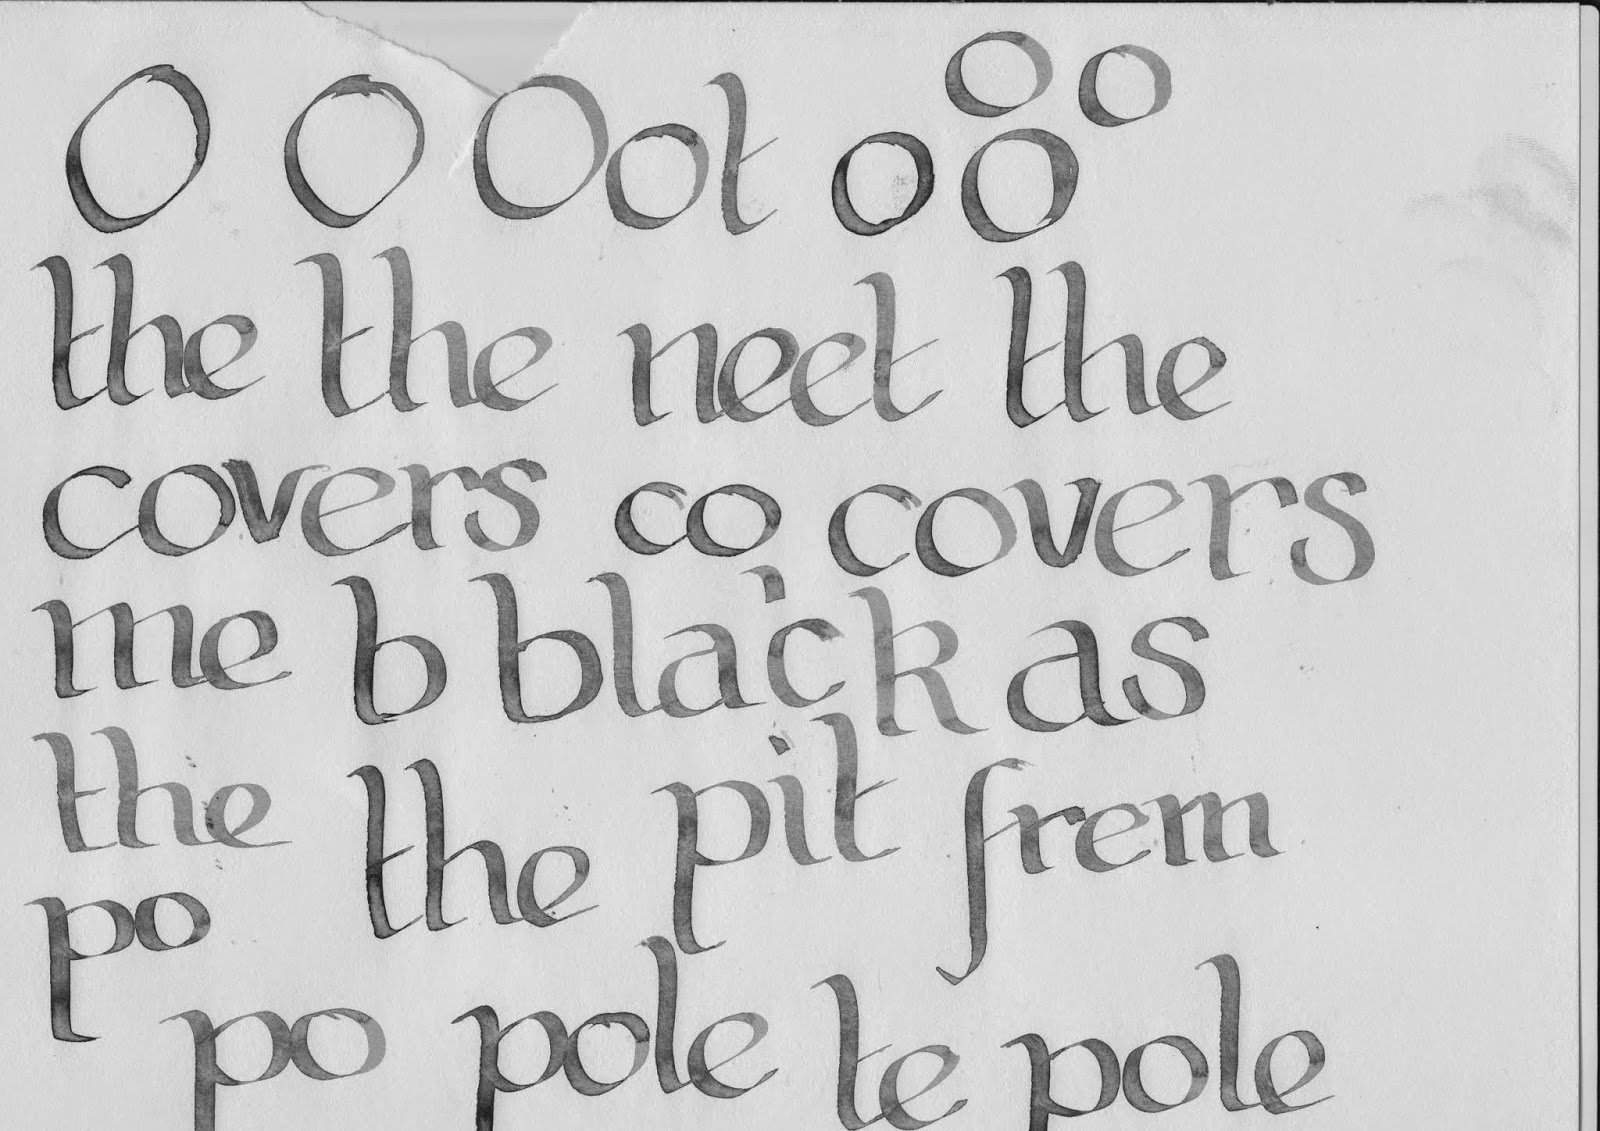 O O Oot o o o o
the the neet the
covers co covers
me b black as
the the pit frem
po
po pole te pole